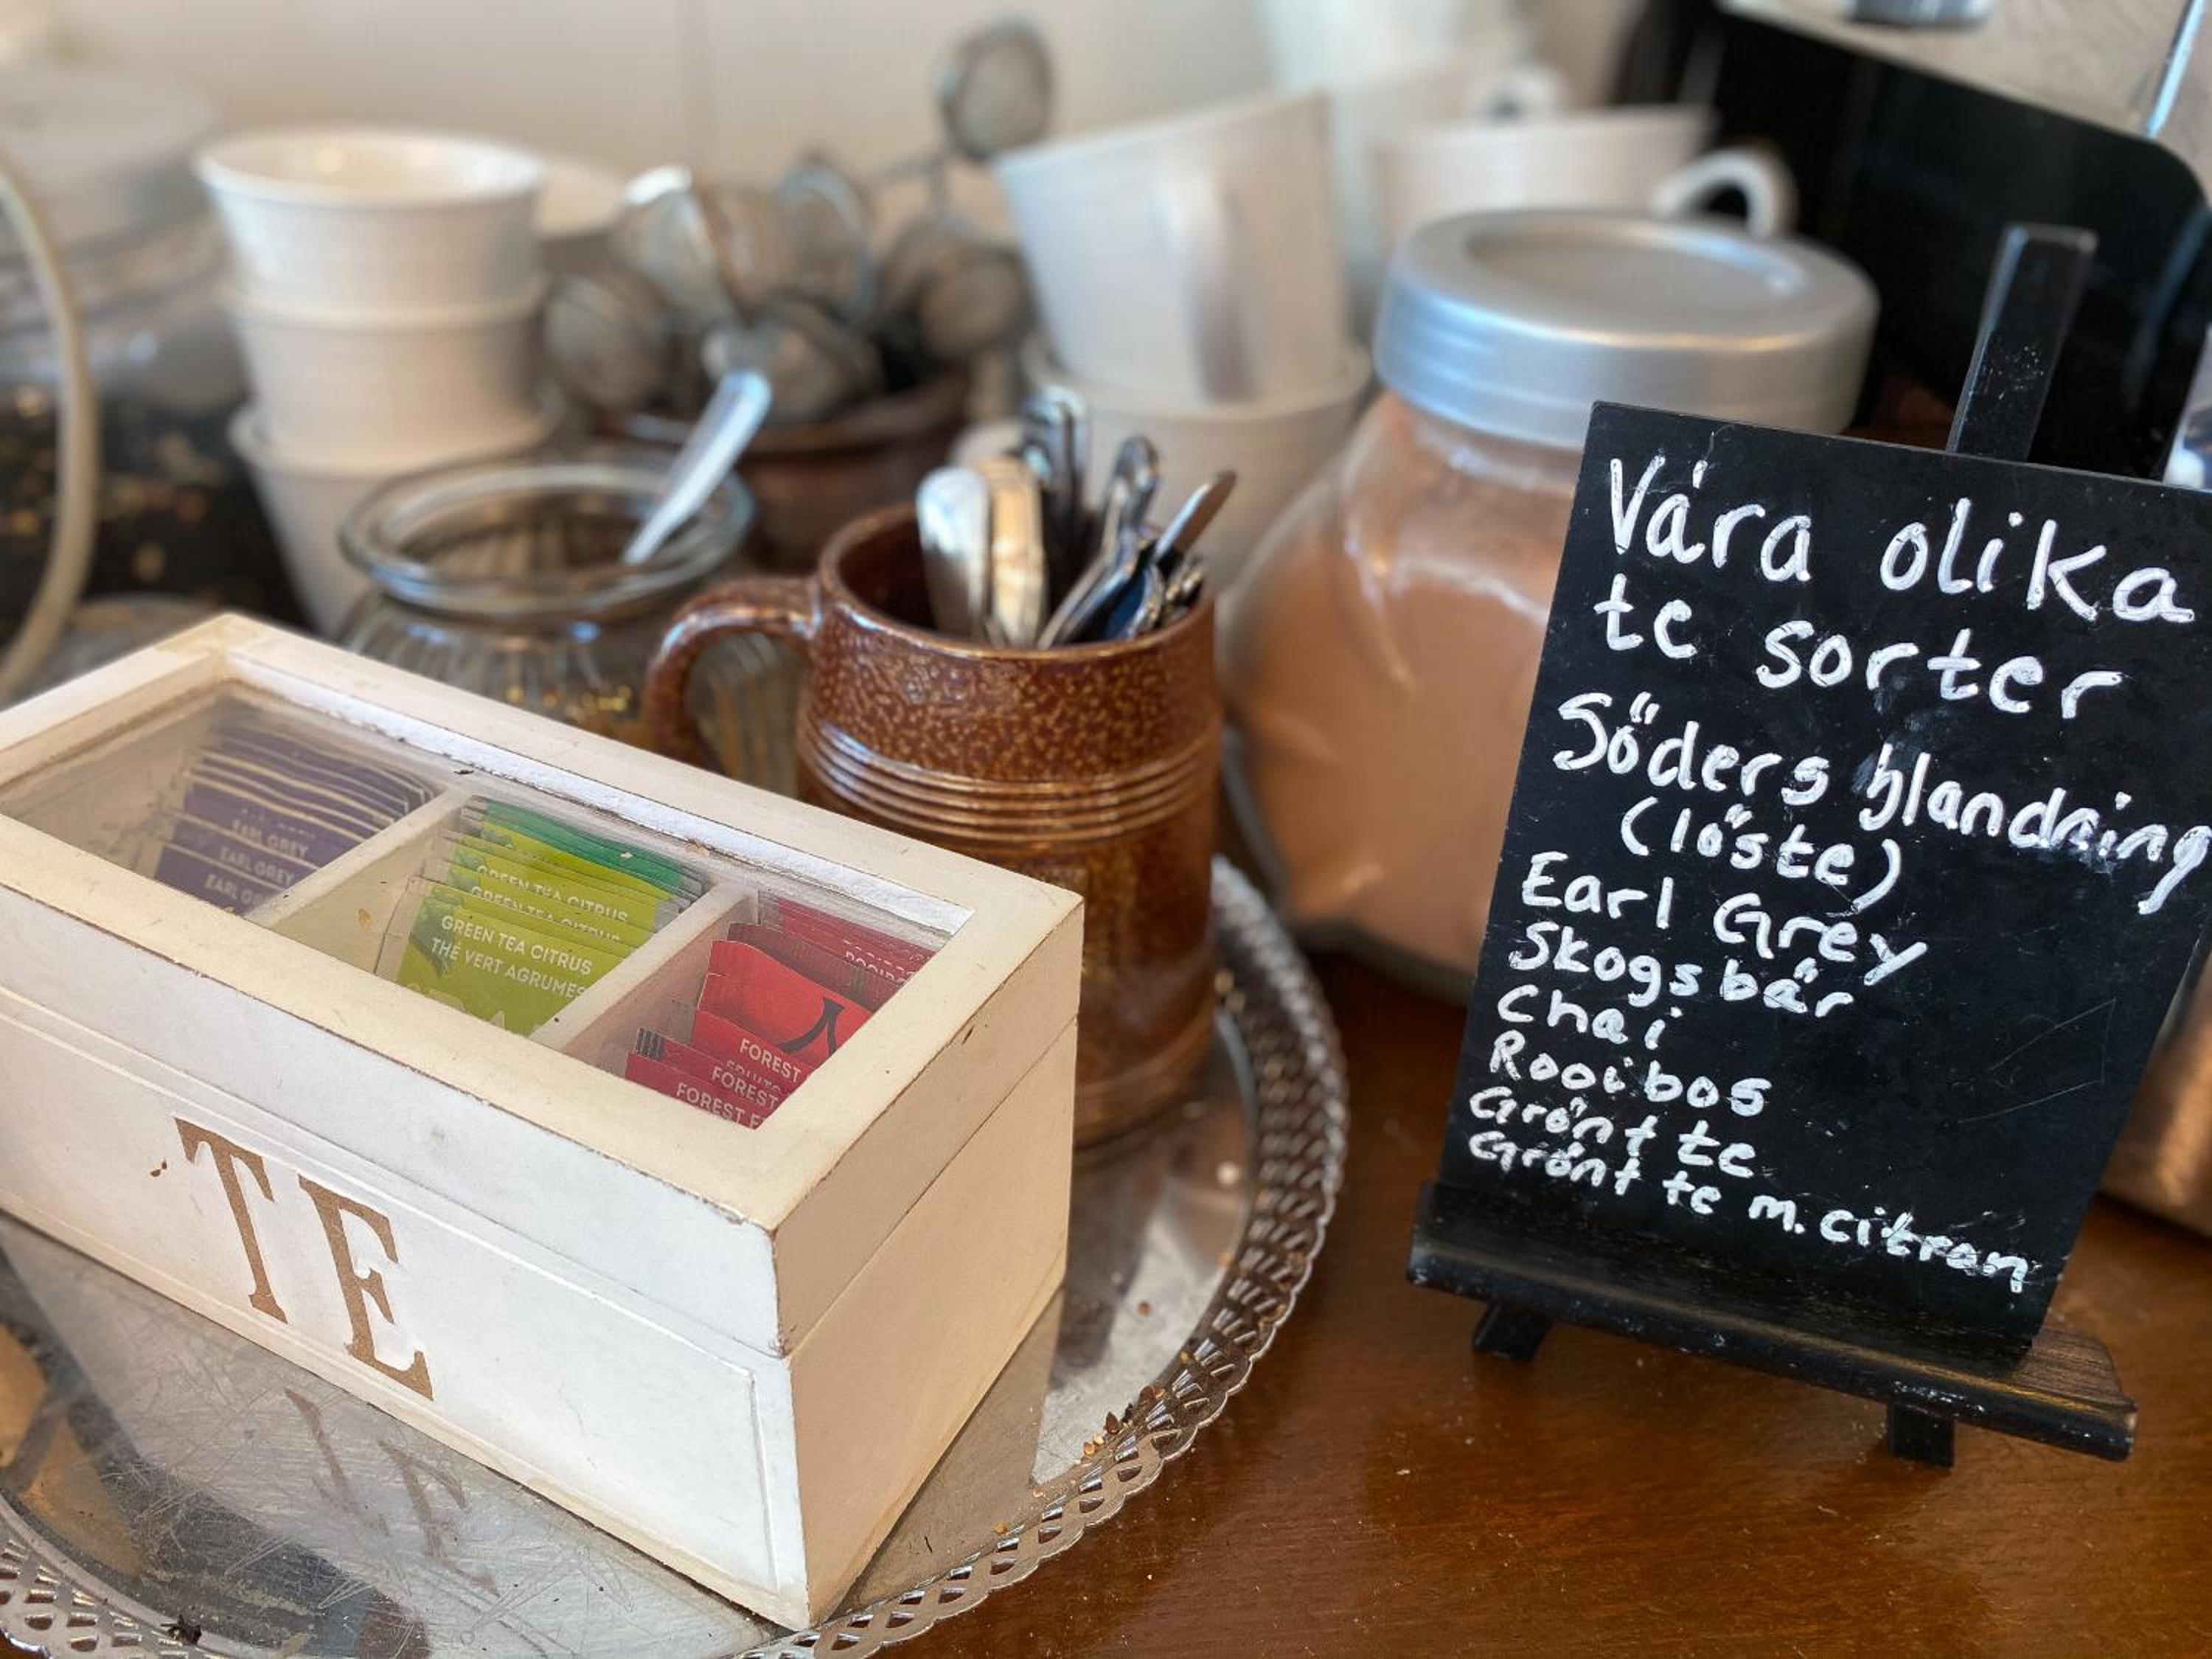 Våra olika
te sorter
Söders blandning
(löste)
Earl Grey
Skogsbär
Chai
Rooibos
Grönt te
Grönt te m. citron
TE
EARL GREY
EARL GREY
EARL G
GREEN TEA CITRUS
GREEN TEA CITRUS
GREEN TEA CITRUS
THÉ VERT AGRUMES
ROOIBOS
FOREST
FRUITS
FOREST
FOREST F